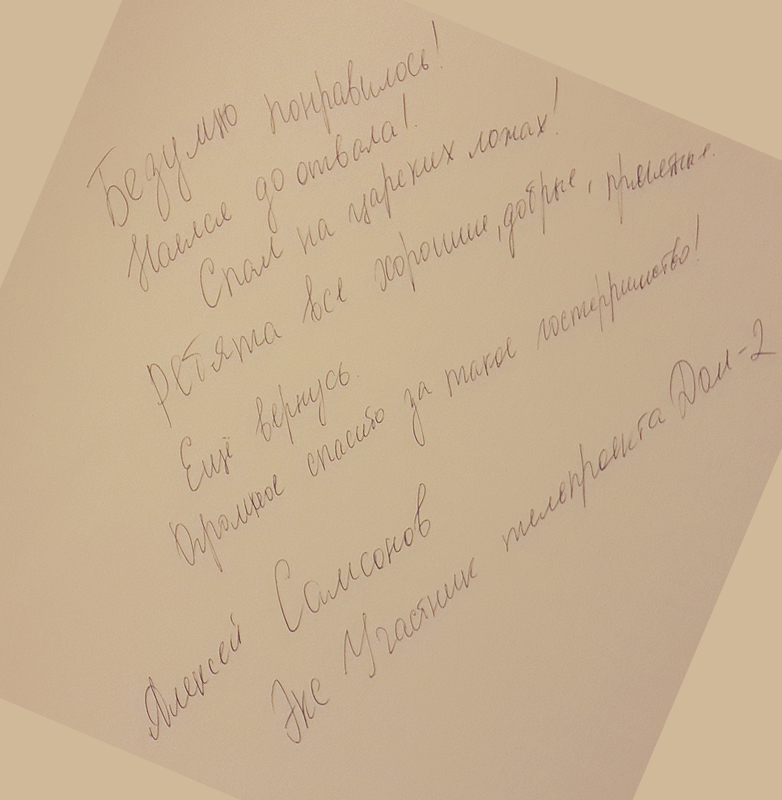 Безумно понравилось!
Наелся до отвала!
Спал на царских ложах!
Ребята все хорошие, добрые, приятные.
Ещё вернусь.
Огромное спасибо за такое гостеприимство!
Алексей Самсонов
Экс Участник телепроекта Дом-2